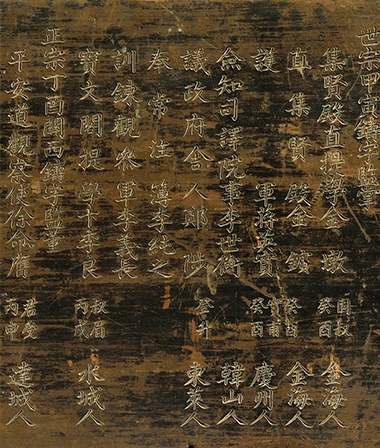 世宗甲寅鑄字監董
集賢殿直提學金墩 癸酉 金海人
直集賢殿金鑌 癸酉 金海人
護軍蔣英實 癸酉 慶州人
僉知司譯院事李世衡 韓山人
議政府舍人鄭陟 東萊人
奉常注簿李純之
訓鍊觀參軍李義長
提學李良 丙戌 水城人
正宗丁酉關西鑄字監董
平安道觀察使徐命膺 君受 丙申 達城人